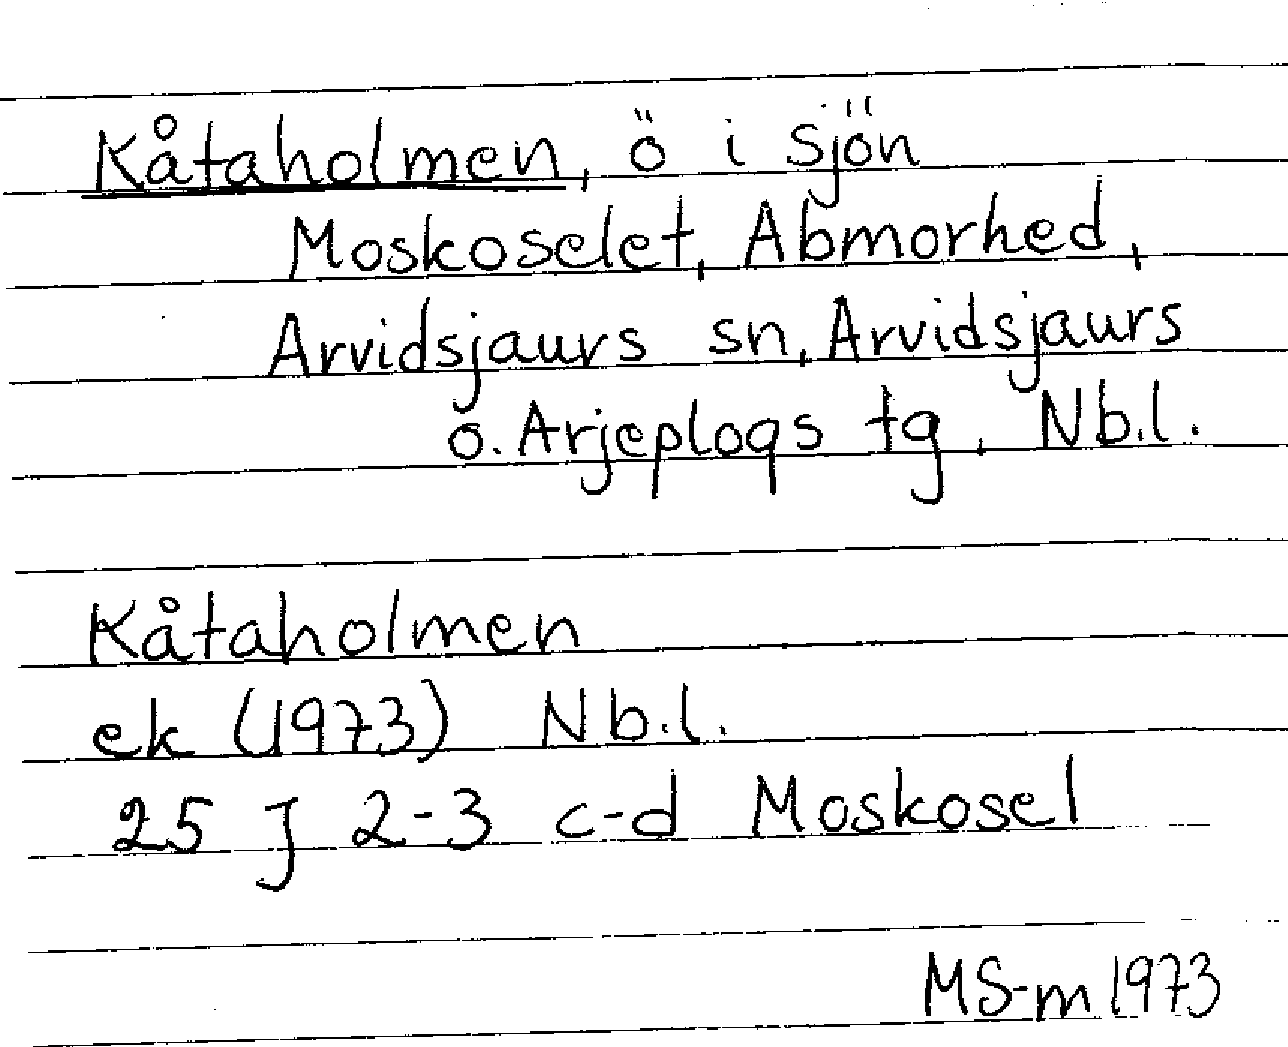 Kåtaholmen, ö i sjön
Moskoselet, Abmorhed,
Arvidsjaurs sn, Arvidsjaurs
o. Arjeplogs tg, Nb.l.
Kåtaholmen
ek (1973) Nb.l.
25 J 2-3 c-d Moskosel
MS-m 1973